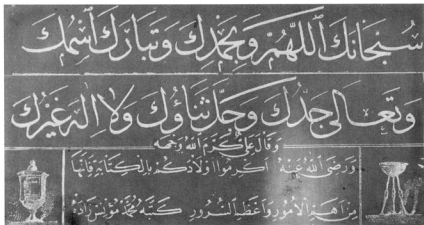 سُبْحَانَكَ اللّٰهُمَّ وَبِحَمْدِكَ وَتَبَارَكَ اسْمُكَ
وَتَعَالٰى جَدُّكَ وَجَلَّ ثَنَاؤُكَ وَلَا اِلٰهَ غَيْرُكَ
وَقَالَ عَلِيٌّ كَرَّمَ اللّٰهُ وَجْهَهُ
وَرَضِيَ اللّٰهُ عَنْهُ اَكْرِمُوا اَوْلَادَكُمْ بِالْكِتَابَةِ فَاِنَّهَا
مِنْ اَهَمِّ الْاُمُورِ وَاَعْظَمِ السُّرُورِ كَتَبَهُ مُحَمَّد مُونِس زَادَه